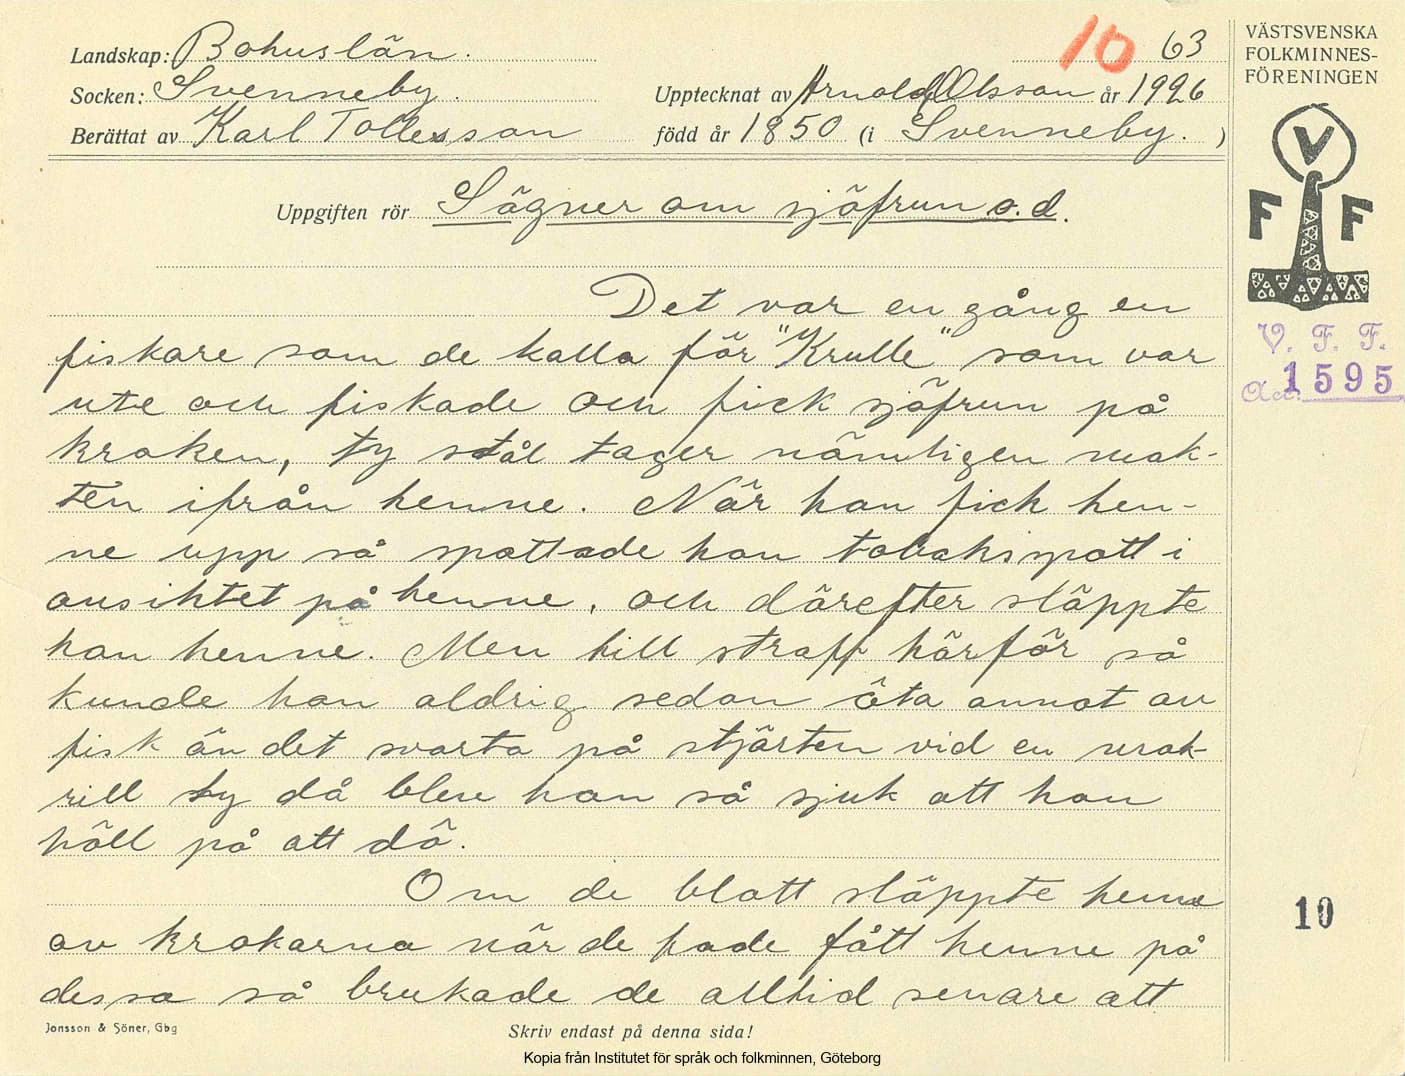 Landskap: Bohuslän. 10 63
Socken: Svenneby. Upptecknat av Arnold Olsson år 1926
Berättat av Karl Tollesson född år 1850 (i Svenneby. )
Uppgiften rör Sägner om sjöfrun o.d.
Det var en gång en
fiskare som de kalla för "Krulle" som var
ute och fiskade och fick sjöfrun på
kroken, ty stål tager nämligen mak-
ten ifrån henne. När han fick hen-
ne upp så spottade han tobakspott i
ansiktet på henne, och därefter släppte
han henne. Men till straff härför så
kunde han aldrig sedan äta annat av
fisk än det svarta på stjärten vid en mak-
rill ty då blev han så sjuk att han
höll på att dö.
Om de blott släppte henne
av krokarna när de hade fått henne på
dessa så brukade de alltid senare att
Jonsson & Söner, Gbg
Skriv endast på denna sida!
Kopia från Institutet för språk och folkminnen, Göteborg
VÄSTSVENSKA
FOLKMINNES-
FÖRENINGEN
V
F F
V. F. F.
Acc. 1595
10